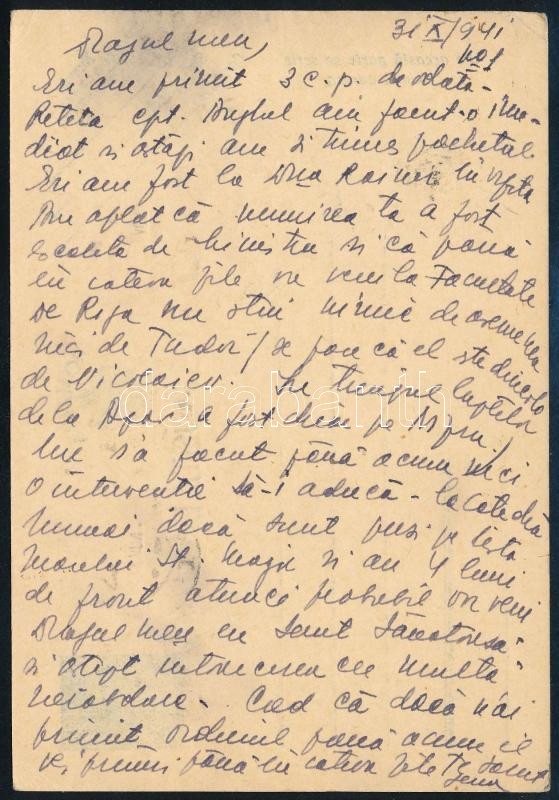 31/X/941
Dragul meu,
Eri am primit 3 c.p. deodată.
Reteta cpt. am facut-o ime-
diat si astăzi am si trimes pachetul.
Eri am fost la Dna în vizita
Am aflat că numirea ta a fost
de Ministru si că până
în cateva zile vei veni la Facultate
De Rega nu stiu nimic de asemenea
nici de Tudor se pare că el este dincolo
de Nicolaiev. In timpul luptelor
dela a fost chiar pe
Nu s'a facut până acum nici
o interventie să-i aducă la catedră
Numai dacă sunt pusi pe lista
Marelui St. Major si au 4 luni
de front atunci probabil vor veni
Dragul meu eu sunt sănătoasă
si astept intoarcerea cu multă
nerăbdare. Cred că dacă n'ai
primit ordinul până acum il
vei primi până în cateva zile Te sarut
darabanth